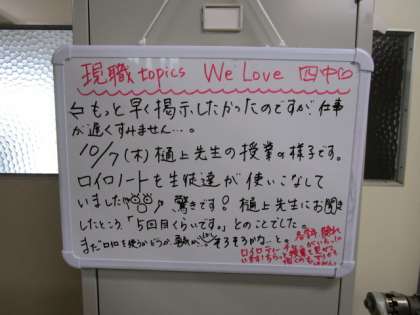 現職topics We Love 四中
←もっと早く掲示したかったのですが仕事
が遅くすみません…。
10/7(木)樋上先生の授業の様子です。
ロイロノートを生徒達が使いこなして
いました 驚きです! 樋上先生にお聞き
したところ、「5回目くらいです。」とのことでした。
まだロイロを使うかどうか そろそろかな…と。